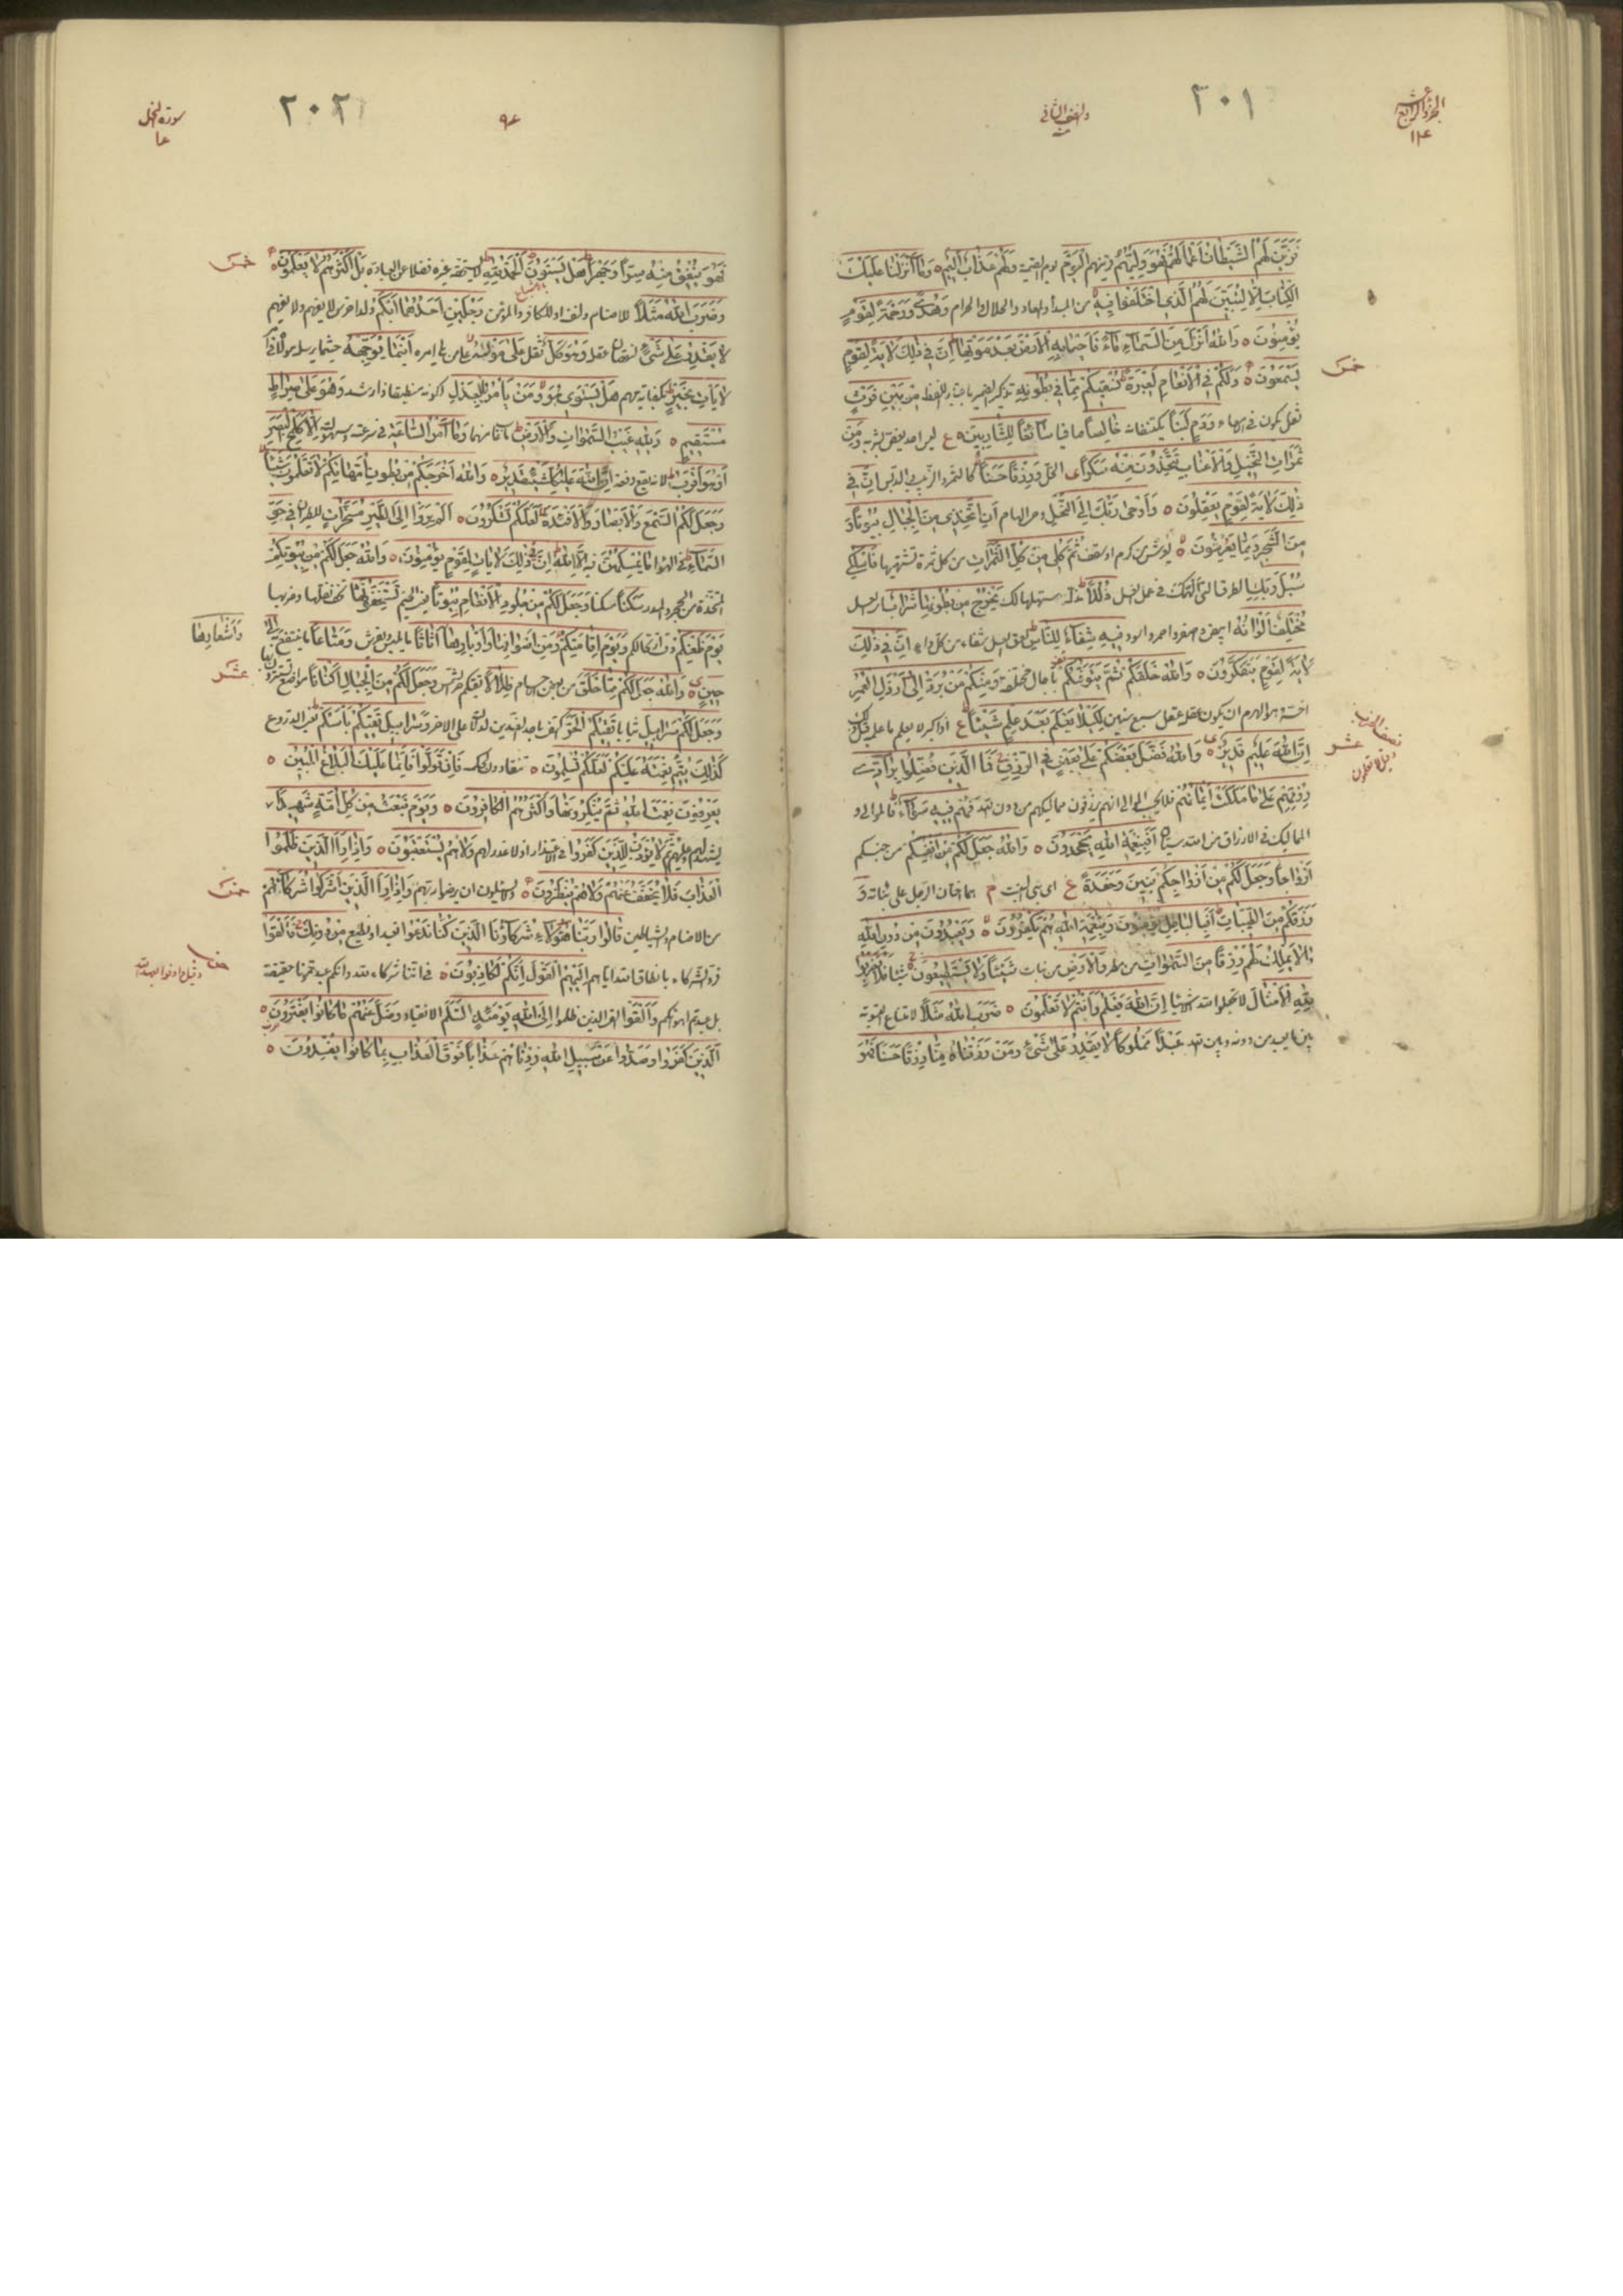 الجزء الرابع عشر
١٤
٢٠١
والنصف الثاني
فَزَيَّنَ لَهُمُ الشَّيْطَانُ أَعْمَالَهُمْ فَهُوَ وَلِيُّهُمُ الْيَوْمَ يوم القيمة وَلَهُمْ عَذَابٌ أَلِيمٌ وَمَا أَنْزَلْنَا عَلَيْكَ
الْكِتَابَ إِلَّا لِتُبَيِّنَ لَهُمُ الَّذِي اخْتَلَفُوا فِيهِ من المبدأ والمعاد والحلال والحرام وَهُدًى وَرَحْمَةً لِقَوْمٍ
يُؤْمِنُونَ وَاللَّهُ أَنْزَلَ مِنَ السَّمَاءِ مَاءً فَأَحْيَا بِهِ الْأَرْضَ بَعْدَ مَوْتِهَا إِنَّ فِي ذَلِكَ لَآيَةً لِقَوْمٍ
يَسْمَعُونَ وَإِنَّ لَكُمْ فِي الْأَنْعَامِ لَعِبْرَةً نُسْقِيكُمْ مِمَّا فِي بُطُونِهِ تذكير الضمير باعتبار اللفظ مِنْ بَيْنِ فَرْثٍ
خمس
ثفل يكون في الامعاء وَدَمٍ لَبَنًا يكتنفانه خَالِصًا صافيا سَائِغًا لِلشَّارِبِينَ ع ليس احد يغص بشربه وَمِنْ
ثَمَرَاتِ النَّخِيلِ وَالْأَعْنَابِ تَتَّخِذُونَ مِنْهُ سَكَرًا الخل وَرِزْقًا حَسَنًا كالتمر والزبيب والدبس إِنَّ فِي
ذَلِكَ لَآيَةً لِقَوْمٍ يَعْقِلُونَ وَأَوْحَى رَبُّكَ إِلَى النَّحْلِ وحي الهام أَنِ اتَّخِذِي مِنَ الْجِبَالِ بُيُوتًا وَ
مِنَ الشَّجَرِ وَمِمَّا يَعْرِشُونَ يعرشون من كرم او سقف ثُمَّ كُلِي مِنْ كُلِّ الثَّمَرَاتِ من كل ثمرة تشتهيها فَاسْلُكِي
سُبُلَ رَبِّكِ الطرق التي الهمك في عمل العسل ذُلُلًا مذللة سهلها لك يَخْرُجُ مِنْ بُطُونِهَا شَرَابٌ يعني العسل
مُخْتَلِفٌ أَلْوَانُهُ ابيض واصفر واحمر واسود فِيهِ شِفَاءٌ لِلنَّاسِ لعق العسل شفاء من كل داء إِنَّ فِي ذَلِكَ
لَآيَةً لِقَوْمٍ يَتَفَكَّرُونَ وَاللَّهُ خَلَقَكُمْ ثُمَّ يَتَوَفَّاكُمْ بآجال مختلفة وَمِنْكُمْ مَنْ يُرَدُّ إِلَى أَرْذَلِ الْعُمُرِ
اخسه هو الهرم ان يكون عقله عقل سبع سنين لِكَيْلَا يَعْلَمَ بَعْدَ عِلْمٍ شَيْئًا ع اذا كبر لا يعلم ما علم قبل ذلك
إِنَّ اللَّهَ عَلِيمٌ قَدِيرٌ وَاللَّهُ فَضَّلَ بَعْضَكُمْ عَلَى بَعْضٍ فِي الرِّزْقِ فَمَا الَّذِينَ فُضِّلُوا بِرَادِّي
عشر
رِزْقِهِمْ عَلَى مَا مَلَكَتْ أَيْمَانُهُمْ فَهُمْ فِيهِ سَوَاءٌ فالموالي و
المماليك في الارزاق من الله سيان أَفَبِنِعْمَةِ اللَّهِ يَجْحَدُونَ وَاللَّهُ جَعَلَ لَكُمْ مِنْ أَنْفُسِكُمْ من جنسكم
أَزْوَاجًا وَجَعَلَ لَكُمْ مِنْ أَزْوَاجِكُمْ بَنِينَ وَحَفَدَةً ع اي بني البنت م هم اختان الرجل على بناته وَ
رَزَقَكُمْ مِنَ الطَّيِّبَاتِ أَفَبِالْبَاطِلِ يُؤْمِنُونَ وَبِنِعْمَةِ اللَّهِ هُمْ يَكْفُرُونَ وَيَعْبُدُونَ مِنْ دُونِ اللَّهِ
مَا لَا يَمْلِكُ لَهُمْ رِزْقًا مِنَ السَّمَاوَاتِ من مطر وَالْأَرْضِ من نبات شَيْئًا وَلَا يَسْتَطِيعُونَ شيئا فَلَا تَضْرِبُوا
لِلَّهِ الْأَمْثَالَ لا تجعلوا لله شريكا إِنَّ اللَّهَ يَعْلَمُ وَأَنْتُمْ لَا تَعْلَمُونَ ضَرَبَ اللَّهُ مَثَلًا لامتناع التسوية
بين ما يعبدون من دونه وبين الله عَبْدًا مَمْلُوكًا لَا يَقْدِرُ عَلَى شَيْءٍ وَمَنْ رَزَقْنَاهُ مِنَّا رِزْقًا حَسَنًا فَهُوَ
سورة النحل
٢٠٢
فَهُوَ يُنْفِقُ مِنْهُ سِرًّا وَجَهْرًا هَلْ يَسْتَوُونَ الْحَمْدُ لِلَّهِ لا يستحقه غيره فضلا عن العبادة بَلْ أَكْثَرُهُمْ لَا يَعْلَمُونَ
خمس
وَضَرَبَ اللَّهُ مَثَلًا للاصنام ولنفسه او للكافر والمؤمن رَجُلَيْنِ أَحَدُهُمَا أَبْكَمُ ولد اخرس لا يفهم ولا يفهم
لَا يَقْدِرُ عَلَى شَيْءٍ لنقصان عقله وَهُوَ كَلٌّ ثقل عَلَى مَوْلَاهُ على من يلي امره أَيْنَمَا يُوَجِّهْهُ حيثما يرسله مولاه في
لَا يَأْتِ بِخَيْرٍ هَلْ يَسْتَوِي هُوَ وَمَنْ يَأْمُرُ بِالْعَدْلِ وَهُوَ عَلَى صِرَاطٍ
مُسْتَقِيمٍ وَلِلَّهِ غَيْبُ السَّمَاوَاتِ وَالْأَرْضِ ما غاب منهما وَمَا أَمْرُ السَّاعَةِ في سرعته وسهولته إِلَّا كَلَمْحِ الْبَصَرِ
أَوْ هُوَ أَقْرَبُ لانه يقع دفعة إِنَّ اللَّهَ عَلَى كُلِّ شَيْءٍ قَدِيرٌ وَاللَّهُ أَخْرَجَكُمْ مِنْ بُطُونِ أُمَّهَاتِكُمْ لَا تَعْلَمُونَ شَيْئًا
وَجَعَلَ لَكُمُ السَّمْعَ وَالْأَبْصَارَ وَالْأَفْئِدَةَ لَعَلَّكُمْ تَشْكُرُونَ أَلَمْ يَرَوْا إِلَى الطَّيْرِ مُسَخَّرَاتٍ للطيران فِي جَوِّ
السَّمَاءِ في الهواء مَا يُمْسِكُهُنَّ فيه إِلَّا اللَّهُ إِنَّ فِي ذَلِكَ لَآيَاتٍ لِقَوْمٍ يُؤْمِنُونَ وَاللَّهُ جَعَلَ لَكُمْ مِنْ بُيُوتِكُمْ
المتخذة من الحجر والمدر سَكَنًا وَجَعَلَ لَكُمْ مِنْ جُلُودِ الْأَنْعَامِ بُيُوتًا تَسْتَخِفُّونَهَا نقلها وضربها
يَوْمَ ظَعْنِكُمْ وَيَوْمَ إِقَامَتِكُمْ وَمِنْ أَصْوَافِهَا وَأَوْبَارِهَا وَأَشْعَارِهَا أَثَاثًا ما يلبس ويفرش وَمَتَاعًا ما ينتفع به إِلَى
حِينٍ وَاللَّهُ جَعَلَ لَكُمْ مِمَّا خَلَقَ ظِلَالًا وَجَعَلَ لَكُمْ مِنَ الْجِبَالِ أَكْنَانًا
عشر
وَجَعَلَ لَكُمْ سَرَابِيلَ ثيابا تَقِيكُمُ الْحَرَّ وَسَرَابِيلَ تَقِيكُمْ بَأْسَكُمْ يعني الدروع
كَذَلِكَ يُتِمُّ نِعْمَتَهُ عَلَيْكُمْ لَعَلَّكُمْ تُسْلِمُونَ تنقادون لحكمه فَإِنْ تَوَلَّوْا فَإِنَّمَا عَلَيْكَ الْبَلَاغُ الْمُبِينُ
يَعْرِفُونَ نِعْمَتَ اللَّهِ ثُمَّ يُنْكِرُونَهَا وَأَكْثَرُهُمُ الْكَافِرُونَ وَيَوْمَ نَبْعَثُ مِنْ كُلِّ أُمَّةٍ شَهِيدًا
يشهد لهم وعليهم ثُمَّ لَا يُؤْذَنُ لِلَّذِينَ كَفَرُوا في الاعتذار اذ لا عذر لهم وَلَا هُمْ يُسْتَعْتَبُونَ وَإِذَا رَأَى الَّذِينَ ظَلَمُوا
الْعَذَابَ فَلَا يُخَفَّفُ عَنْهُمْ وَلَا هُمْ يُنْظَرُونَ وَإِذَا رَأَى الَّذِينَ أَشْرَكُوا شُرَكَاءَهُمْ
خمس
من الاصنام والشياطين قَالُوا رَبَّنَا هَؤُلَاءِ شُرَكَاؤُنَا الَّذِينَ كُنَّا نَدْعُوا نعبد او نطيع مِنْ دُونِكَ فَأَلْقَوْا
إِلَيْهِمُ الْقَوْلَ إِنَّكُمْ لَكَاذِبُونَ في اننا شركاء لله وانكم عبدتمونا حقيقة
بل عبدتم اهواءكم وَأَلْقَوْا الذين ظلموا إِلَى اللَّهِ يَوْمَئِذٍ السَّلَمَ الانقياد وَضَلَّ عَنْهُمْ مَا كَانُوا يَفْتَرُونَ
الَّذِينَ كَفَرُوا وَصَدُّوا عَنْ سَبِيلِ اللَّهِ زِدْنَاهُمْ عَذَابًا فَوْقَ الْعَذَابِ بِمَا كَانُوا يُفْسِدُونَ